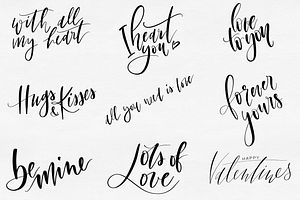 with all
my heart
I heart
you
love
to you
Hugs &
Kisses
all you need is love
forever
yours
be mine
Lots of
Love
HAPPY
Valentines